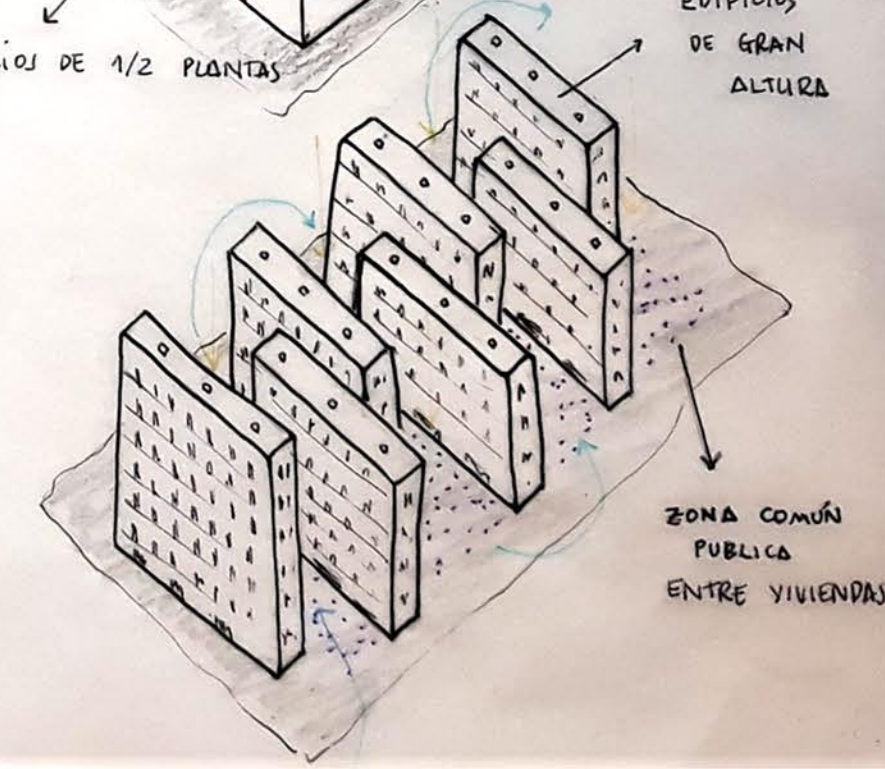 iOS DE 1/2 PLANTAS
EDIFICIOS
DE GRAN
ALTURA
ZONA COMÚN
PUBLICA
ENTRE VIVIENDAS